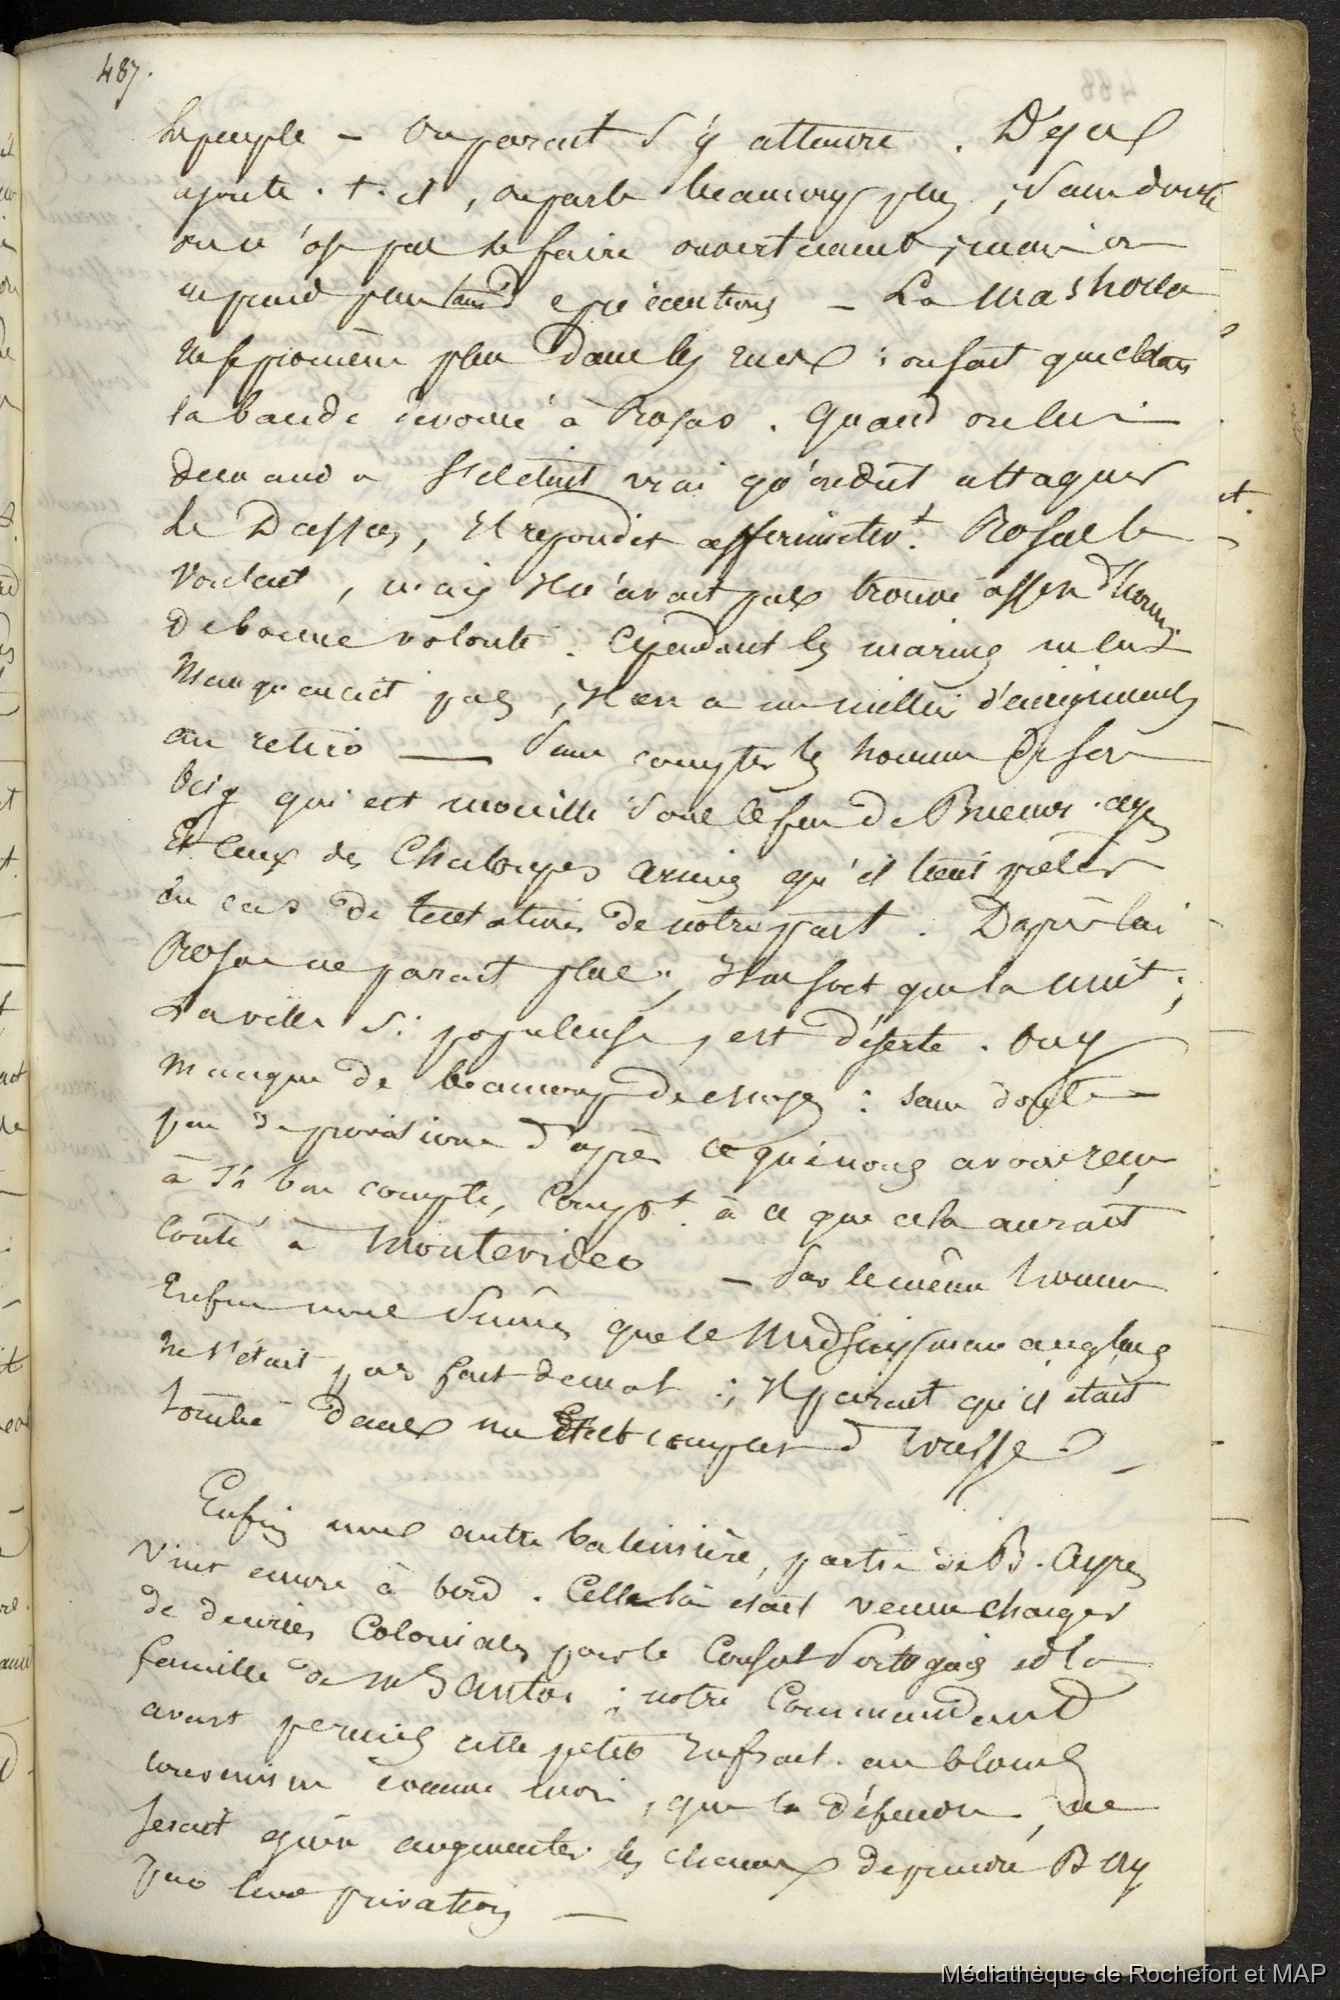 487.
le peuple – on parait s'y attendre. Déjà
ajoute-t-il, on parle beaucoup plus, sans doute
on n'ose pas le faire ouvertement; mais on
prend précautions – La mashorca
ne se promène plus dans les rues : on sait que c'est
la bande dévouée à Rosas. Quand on lui
demanda s'il était vrai qu'on dût attaquer
le Dassas, il répondit affirmativt. Rosas le
voulait, mais il n'avait pas trouvé assez d'hommes
de bonne volonté. Cependant les marins ne lui
manquaient pas, il en a un millier
au retiro — sans compter les hommes de son
brig qui est mouillé sous le feu de Buenos-ayres
et ceux des chaloupes armées qu'il tient prêtes
en cas de tentatives de notre part. D'après lui
Rosas ne parait plus, il ne sort que la nuit;
La ville si populeuse, est déserte. On y
manque de beaucoup de choses : sans doute
peu de provisions d'après ce que nous avons reçu
à si bon compte, compt. à ce que cela aurait
coûté à Montevideo – Par le même homme
Enfin nous sûmes que le Midshipman anglais
ne s'était pas fait de mal; il parait qu'il était
tombé dans un état complet d'ivresse –
Enfin une autre baleinière, partie de B. Ayres
vint encore à bord. Celle là était venue charger
de denrées coloniales pour le Consul Portugais et la
famille de Mr Santos; notre Commandant
avait permis cette petite infract. au blocus
convaincu comme moi, que la défendre, ne
serait qu'augmenter les chances de prendre B Ay
par leurs privations —
Médiathèque de Rochefort et MAP